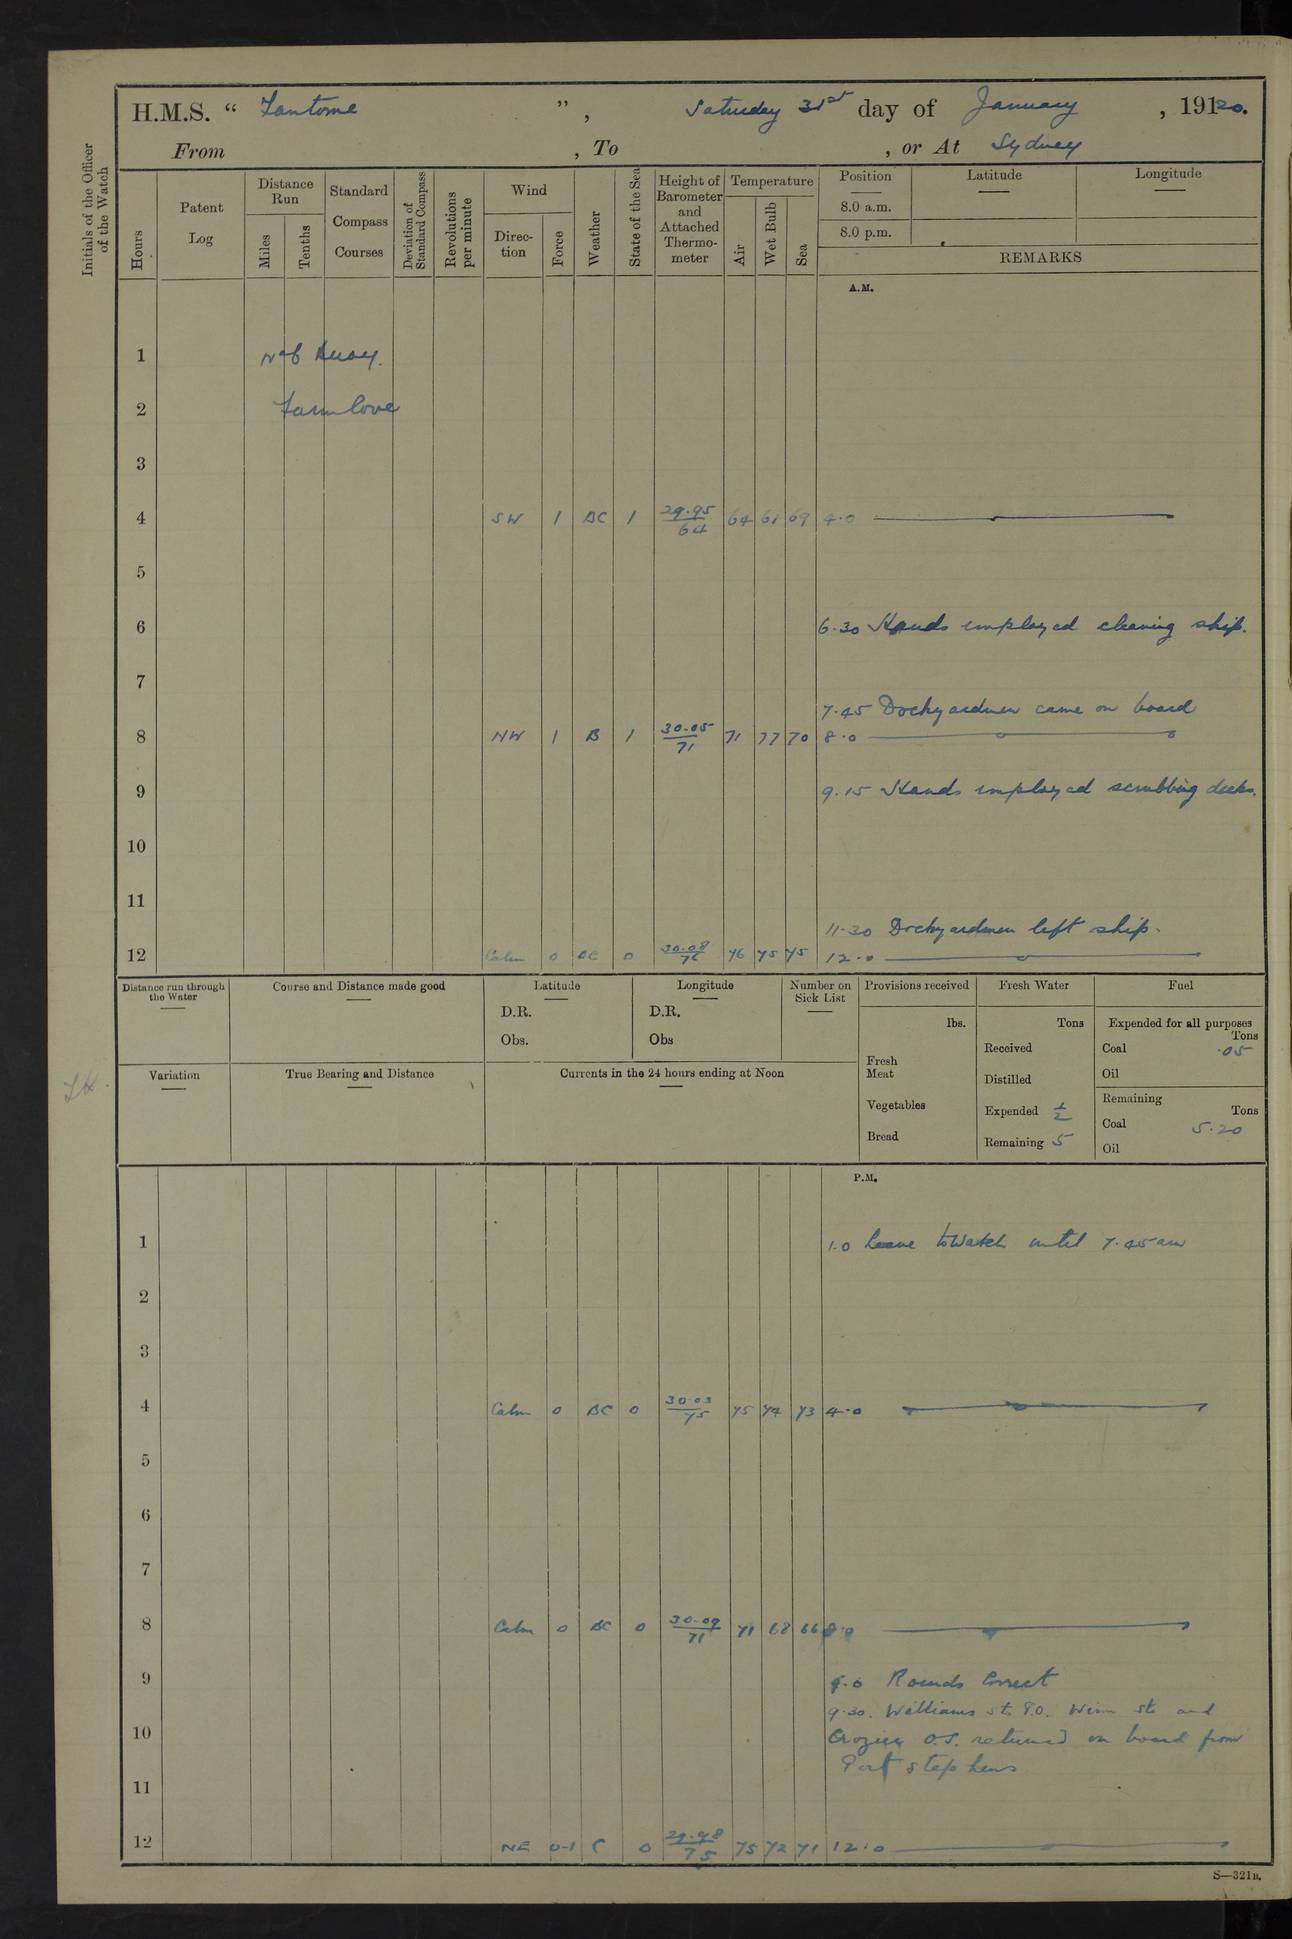 H.M.S. “ Fantome ”, Saturday 31st day of January, 19120.
From , To , or At Sydney
Initials of the Officer of the Watch
Hours
Patent Log
Distance Run
Miles
Tenths
Standard Compass Courses
Deviation of Standard Compass
Revolutions per minute
Wind
Direction
Force
Weather
State of the Sea
Height of Barometer and Attached Thermometer
Temperature
Air
Wet Bulb
Sea
Position
8.0 a.m.
8.0 p.m.
Latitude
Longitude
REMARKS
A.M.
1 No 6 Buoy.
2 Farm Cove
3
4 SW 1 BC 1 29.95/64 64 61 69 4.0
5
6 6.30 Hands employed cleaning ship.
7
7.45 Dockyardmen came on board
8 NW 1 B 1 30.05/71 71 77 70 8.0
9 9.15 Hands employed scrubbing decks.
10
11
11.30 Dockyardmen left ship.
12 Calm 0 BC 0 30.08/76 76 75 75 12.0
Distance run through the Water
Course and Distance made good
Latitude
D.R.
Obs.
Longitude
D.R.
Obs
Number on Sick List
Provisions received
lbs.
Fresh Meat
Vegetables
Bread
Fresh Water
Tons
Received
Distilled
Expended 1/2
Remaining 5
Fuel
Expended for all purposes
Tons
Coal .05
Oil
Remaining
Tons
Coal 5.20
Oil
Variation
True Bearing and Distance
Currents in the 24 hours ending at Noon
P.M.
1 1.0 Leave to Watch until 7.45 am
2
3
4 Calm 0 BC 0 30.03/75 75 74 73 4.0
5
6
7
8 Calm 0 BC 0 30.09/71 71 68 66 8.0
9 9.0 Rounds Correct
9.30. Williams Sto P.O. Winn Sto and
10 Crozier O.S. returned on board from
Port Stephens
11
12 NE 0-1 C 0 29.98/75 75 72 71 12.0
S—321B.